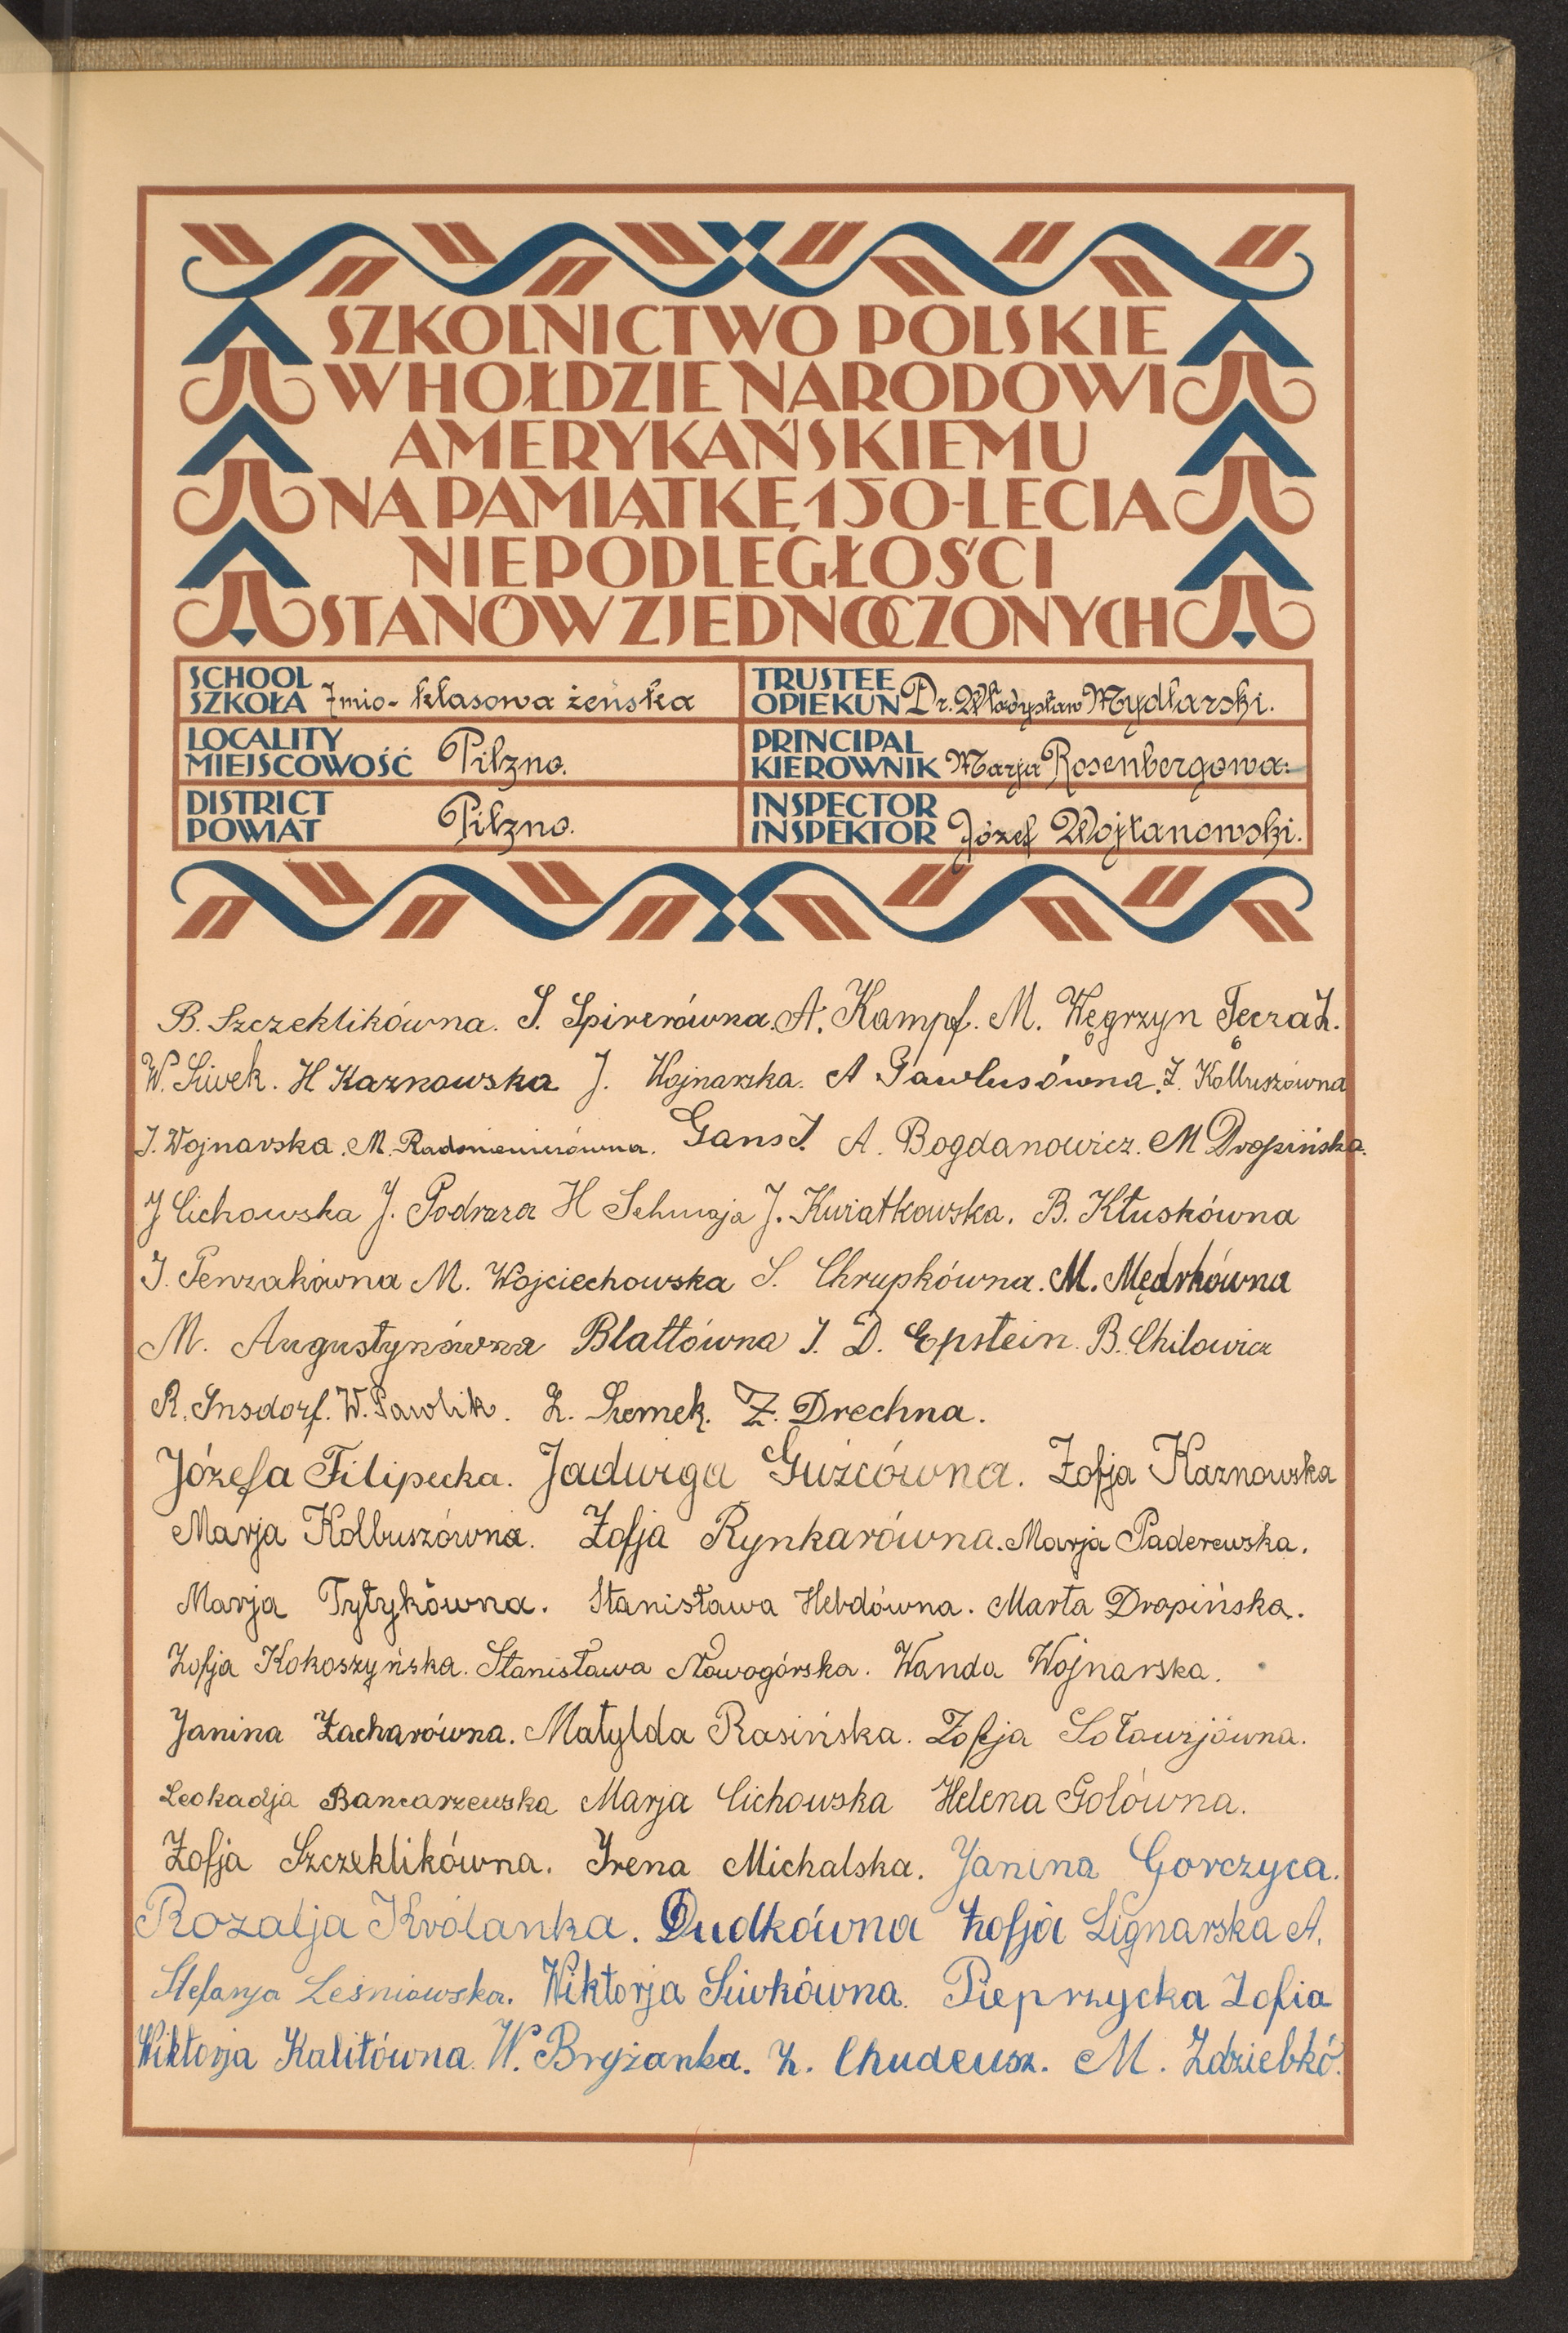 SZKOLNICTWO POLSKIE
W HOŁDZIE NARODOWI
AMERYKAŃSKIEMU
NA PAMIĄTKĘ 150-LECIA
NIEPODLEGŁOŚCI
STANÓW ZJEDNOCZONYCH
SCHOOL
SZKOŁA 7mio-klasowa żeńska
TRUSTEE
OPIEKUN Dr. Władysław Mydlarski.
LOCALITY
MIEJSCOWOŚĆ Pilzno.
PRINCIPAL
KIEROWNIK Marja Rosenbergowa.
DISTRICT
POWIAT Pilzno.
INSPECTOR
INSPEKTOR Józef Wojtanowski.
B. Szczeklikówna. S. Spirerówna. A. Kampf. M. Węgrzyn Tęcza Z.
W. Siwek. H Kaznowska J. Wojnarska. A Pawlusówna. Z. Kolbuszówna
J. Wojnarska. M. Gans J. A. Bogdanowicz. M Dropińska.
J Cichowska J. Podraza H J. Kwiatkowska. B. Kłuskówna
J. Penzakówna M. Wojciechowska S. Chrupkówna. M. Mędrkówna
M. Augustynówna Blattówna J. D. Epstein. B. Chilowicz
R. Insdorf. W. Pawlik. Z. Siemek. Z. Drechna.
Józefa Filipecka. Jadwiga Guzcówna. Zofja Kaznowska
Marja Kolbuszówna. Zofja Rynkarówna. Marja Paderewska.
Marja Tytykówna. Stanisława Hebdówna. Marta Dropińska.
Zofja Kokoszyńska. Stanisława Nowogórska. Wanda Wojnarska.
Janina Zacharówna. Matylda Rasińska. Zofja Sołowijówna.
Leokadja Bancarzewska Marja Cichowska Helena Golówna.
Zofja Szczeklikówna. Irena Michalska. Janina Gorczyca.
Rozalja Królanka. Dudkówna Zofja Lignarska A.
Stefanja Leśniowska. Wiktorja Siwkówna. Pieprzycka Zofia
Wiktorja Kalitówna. W. Bryżanka. Z. Chudeusz. M. Zdziebkó.